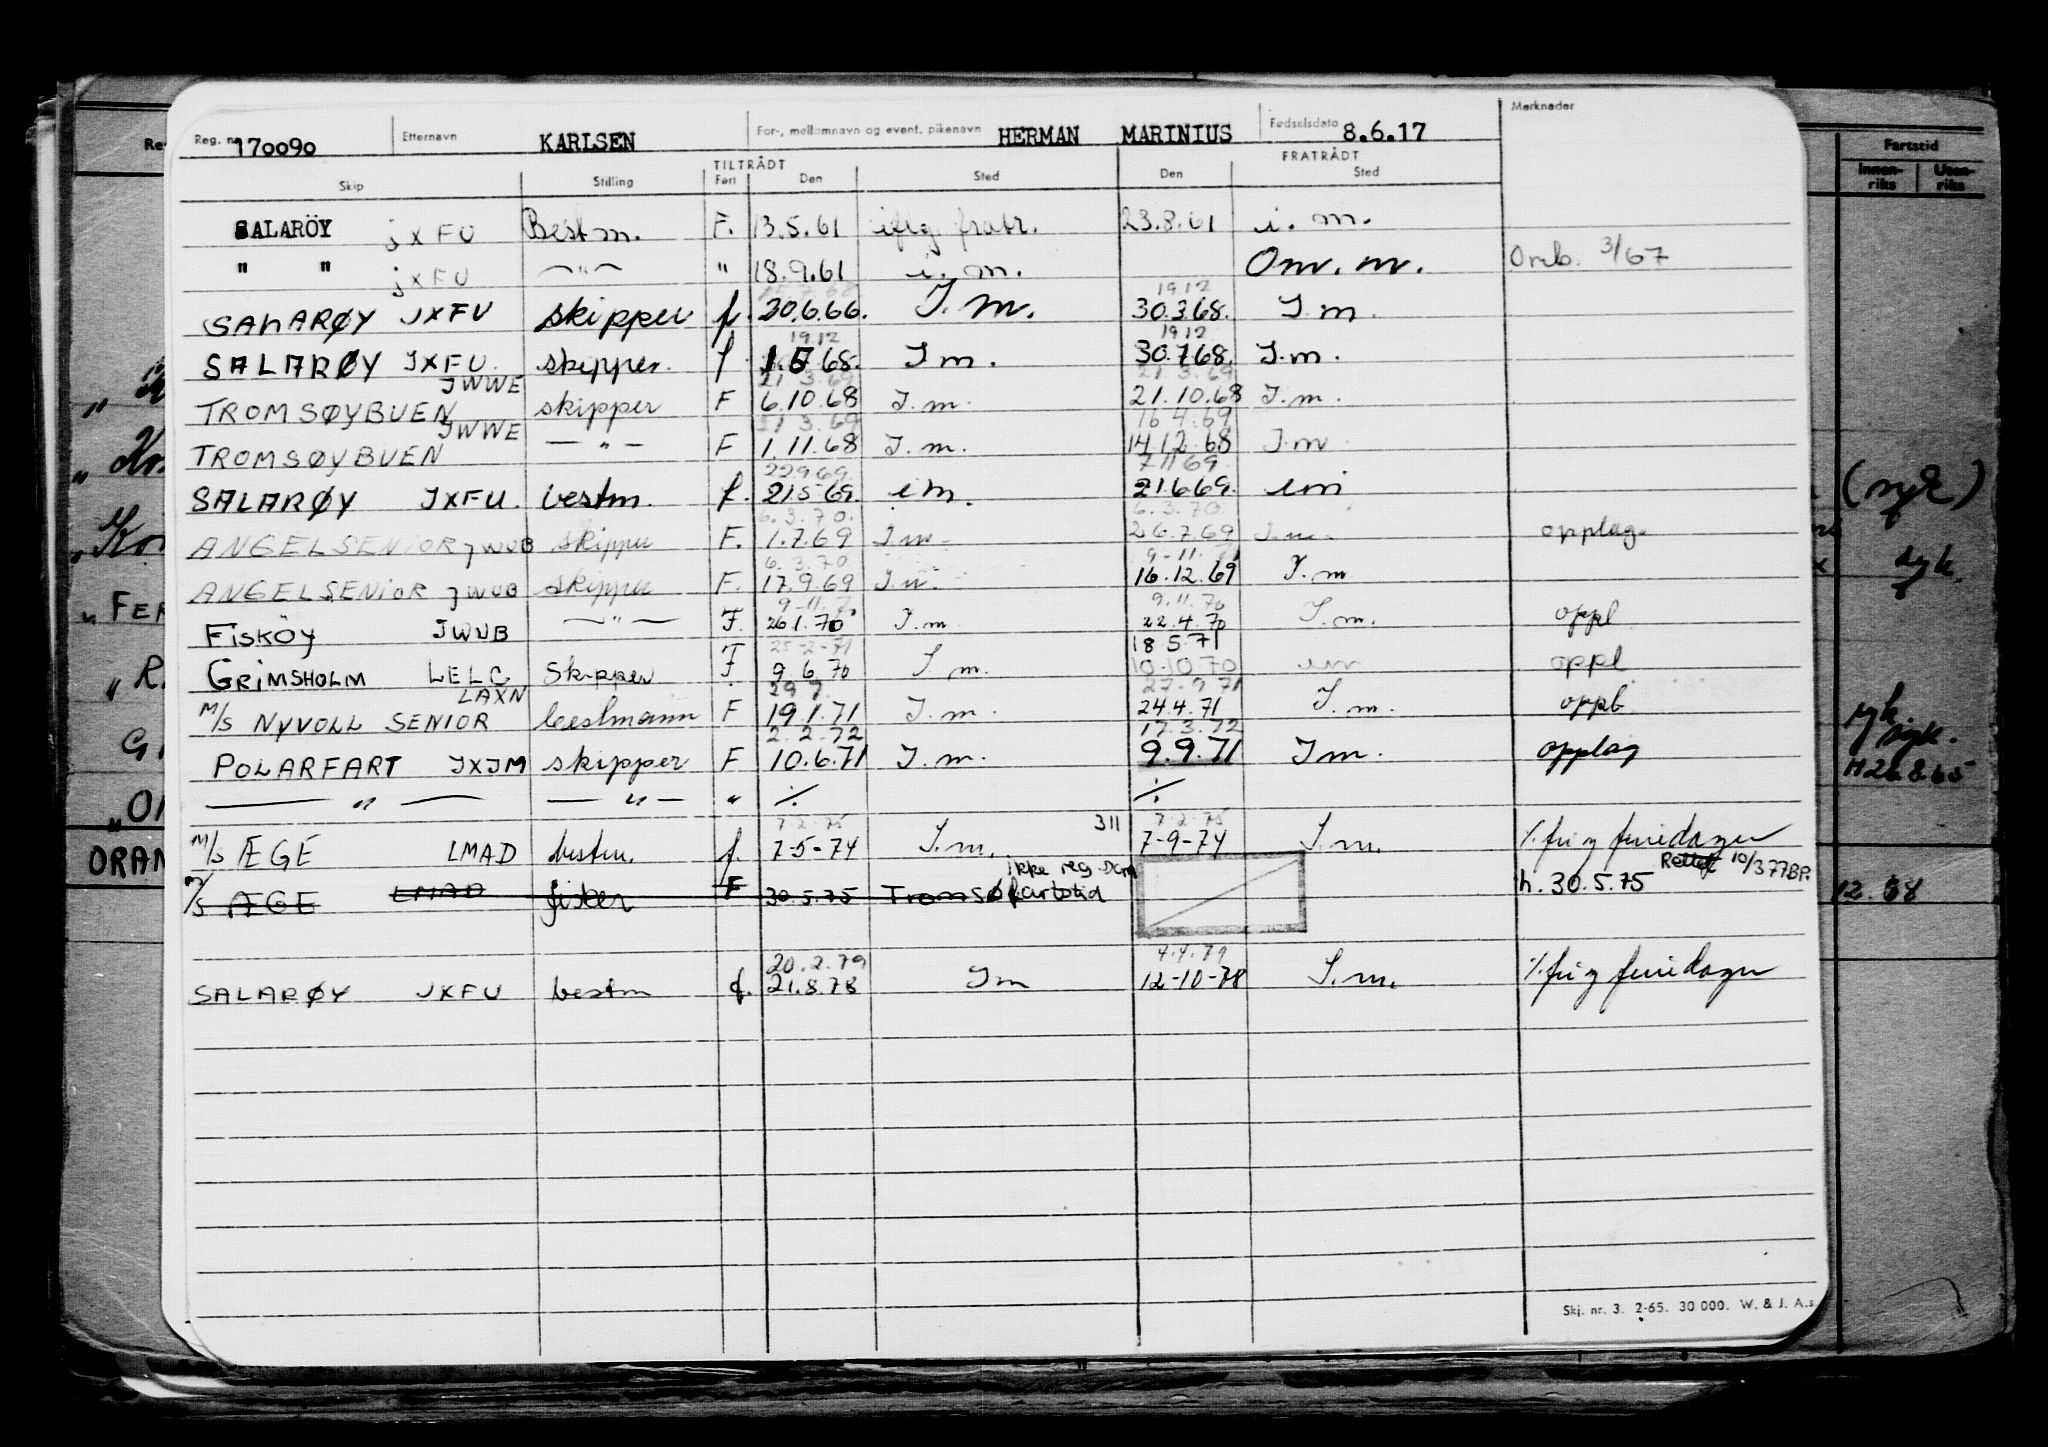 Reg. nr. 170090 Etternavn KARLSEN For-, mellomnavn og event. pikenavn HERMAN MARINIUS Fødselsdato 8.6.17 Merknader
TILTRÅDT FRATRÅDT
Skip Stilling Fart Den Sted Den Sted
SALARÖY jxFU Bestm. F. 13.5.61 iflg. fratr. 23.8.61 i. m.
" " jxFU —"— " 18.9.61 i. m. Om. m. Omb. 3/67
19 12
SALARØY JXFU skipper f. 20.6.66. I. m. 30.3.68. I. m.
19.12 19 12
SALARØY JXFU. skipper. f 1.5 68. I m. 30.7.68. I.m.
21 3.69 21 3.69
TROMSØYBUEN JWWE skipper F 6.10.68 I.m. 21.10.68 I.m.
21 3.69 16 4.69
TROMSØYBUEN JWWE —"— F 1.11.68 I.m. 14.12.68 I.m
22969 7 11 69
SALARØY JXFU. bestm. f. 21.5 69. i m. 21.6.69. im
6.3.70. 6.3.70
ANGELSENIOR JWUB skipper F. 1.7.69 I m 26.7.69 I.m. opplag.
6.3.70 9-11.71
ANGELSENIOR JWUB skipper F. 17.9.69 I m. 16.12.69 I.m
9-11.7 9.11.70
FISKÖY JWUB —"— F. 26 1.70 I.m 22.4.70 I.m. oppl
25-2-71 18 5.71
GRIMSHOLM LELC skipper F 9 6 70 I m. 10.10.70 im oppl
29 7. 27-9 71
M/S NYVOLL SENIOR LAXN bestmann F 19.1.71 I.m. 24.4.71 I.m. oppl
2.2.72 17.3.72
POLARFART JXJM skipper F 10.6.71 I.m. 9.9.71 I m. opplag
—"— —"— " ./. ./.
7-2-75 311 7-2-75
M/S ÆGE LMAD bestm. f. 7-5-74 I.m. 7-9-74 I.m. ./. fri og feriedager
ikke reg. som Rettet 10/3 77 BP.
M/S ÆGE LMAD fisker F 30.5.75 Tromsø fartstid h. 30.5.75
20.2.79 4.4.79
SALARØY JXFU bestm f. 21.8.78 Im 12-10-78 I.m. ./. fri og feriedager
Skj. nr. 3. 2-65. 30 000. W. & J. A.s
Re
"
"
"
" FER
" R.
G
"OR
ORAN
Fartstid
Innen-riks Uten-riks
(syk)
syk.
syk
syk.
H 26.8.65
12.58